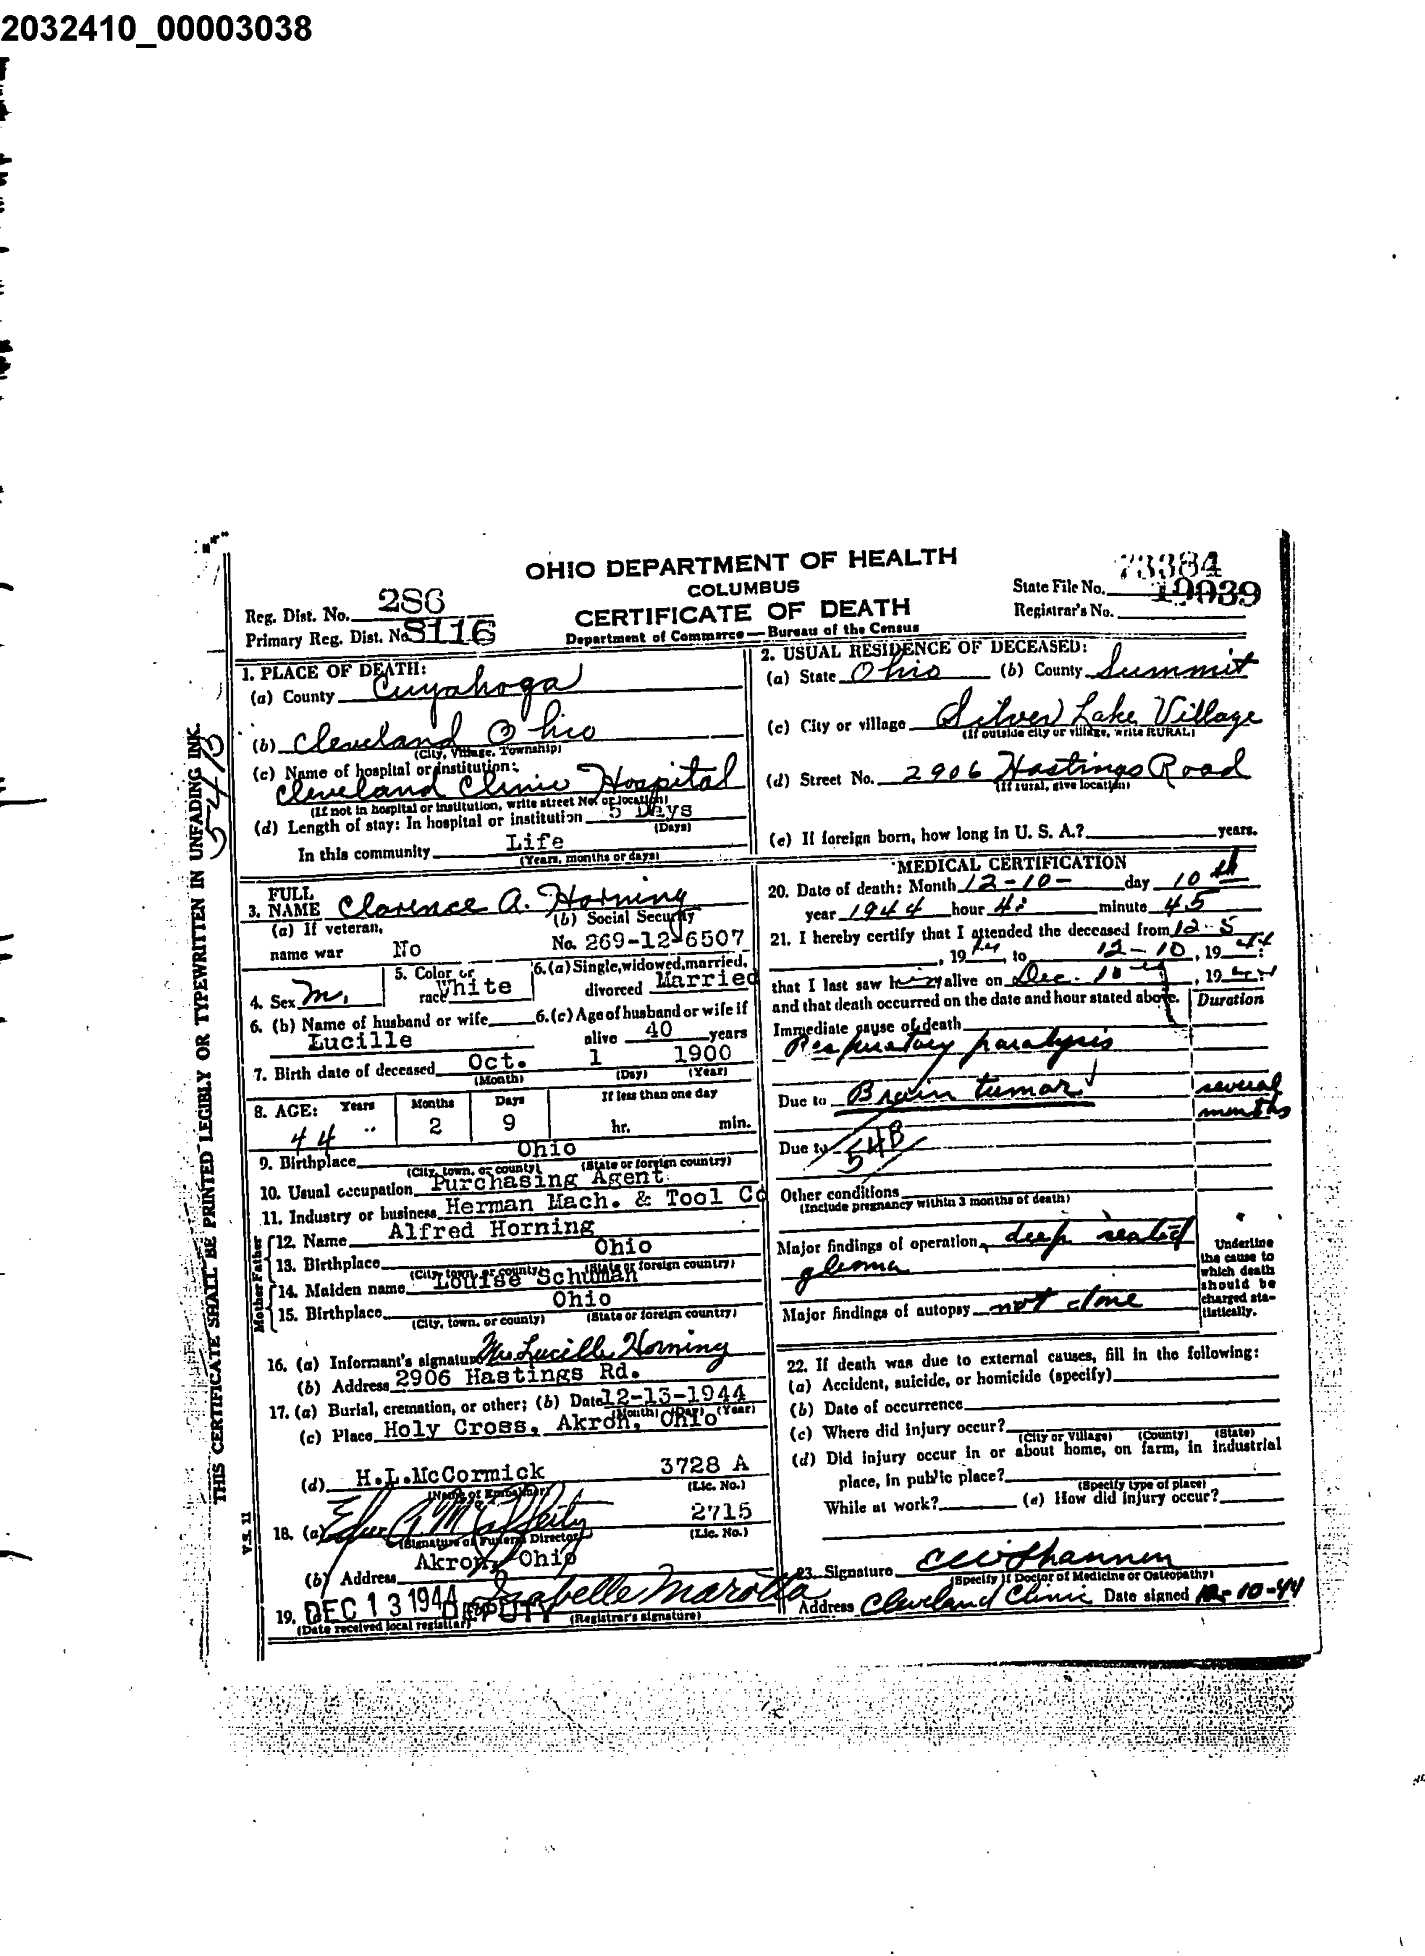 2032410_00003038
OHIO DEPARTMENT OF HEALTH
COLUMBUS
CERTIFICATE OF DEATH
Department of Commerce — Bureau of the Census
Reg. Dist. No. 286
Primary Reg. Dist. No. 8116
State File No. 73384
Registrar's No. 10039
THIS CERTIFICATE SHALL BE PRINTED LEGIBLY OR TYPEWRITTEN IN UNFADING INK.
V.S. 11
1. PLACE OF DEATH:
(a) County Cuyahoga
(b) Cleveland Ohio
(City, Village, Township)
(c) Name of hospital or institution:
Cleveland Clinic Hospital
(If not in hospital or institution, write street No. or location)
(d) Length of stay: In hospital or institution 5 Days
(Days)
In this community Life
(Years, months or days)
2. USUAL RESIDENCE OF DECEASED:
(a) State Ohio (b) County Summit
(c) City or village Silver Lake Village
(If outside city or village, write RURAL)
(d) Street No. 2906 Hastings Road
(If rural, give location)
(e) If foreign born, how long in U. S. A.? years.
3. FULL NAME Clarence A. Horning
(a) If veteran, name war No
(b) Social Security No. 269-12-6507
4. Sex M.
5. Color or race White
6. (a) Single, widowed, married, divorced Married
6. (b) Name of husband or wife Lucille
6. (c) Age of husband or wife if alive 40 years
7. Birth date of deceased Oct. 1 1900
(Month) (Day) (Year)
8. AGE: Years Months Days If less than one day
44 2 9 hr. min.
9. Birthplace Ohio
(City, town, or county) (State or foreign country)
10. Usual occupation Purchasing Agent
11. Industry or business Herman Mach. & Tool Co
Father
12. Name Alfred Horning
13. Birthplace Ohio
(City, town, or county) (State or foreign country)
Mother
14. Maiden name Louise Schuman
15. Birthplace Ohio
(City, town, or county) (State or foreign country)
16. (a) Informant's signature Mrs Lucille Horning
(b) Address 2906 Hastings Rd.
17. (a) Burial, cremation, or other; (b) Date 12-13-1944
(Month) (Day) (Year)
(c) Place Holy Cross, Akron, Ohio
(d) H.L.McCormick 3728 A
(Name of Embalmer) (Lic. No.)
18. (a) 2715
(Signature of Funeral Director) (Lic. No.)
(b) Address Akron, Ohio
19. DEC 13 1944 DEPUTY Isabelle Marotta
(Date received local registrar) (Registrar's signature)
MEDICAL CERTIFICATION
20. Date of death: Month 12-10- day 10th
year 1944 hour 4: minute 45
21. I hereby certify that I attended the deceased from 12-5
, 1944, to 12-10, 1944
that I last saw him alive on Dec. 10th, 1944
and that death occurred on the date and hour stated above. Duration
Immediate cause of death
Respiratory paralysis
Due to Brain tumor several months
Due to
54B
Other conditions
(Include pregnancy within 3 months of death)
Major findings of operation deep seated
glioma
Major findings of autopsy not done
Underline the cause to which death should be charged statistically.
22. If death was due to external causes, fill in the following:
(a) Accident, suicide, or homicide (specify)
(b) Date of occurrence
(c) Where did injury occur?
(City or Village) (County) (State)
(d) Did injury occur in or about home, on farm, in industrial
place, in public place?
(Specify type of place)
While at work? (e) How did injury occur?
23. Signature
(Specify if Doctor of Medicine or Osteopathy)
Address Cleveland Clinic Date signed 12-10-44